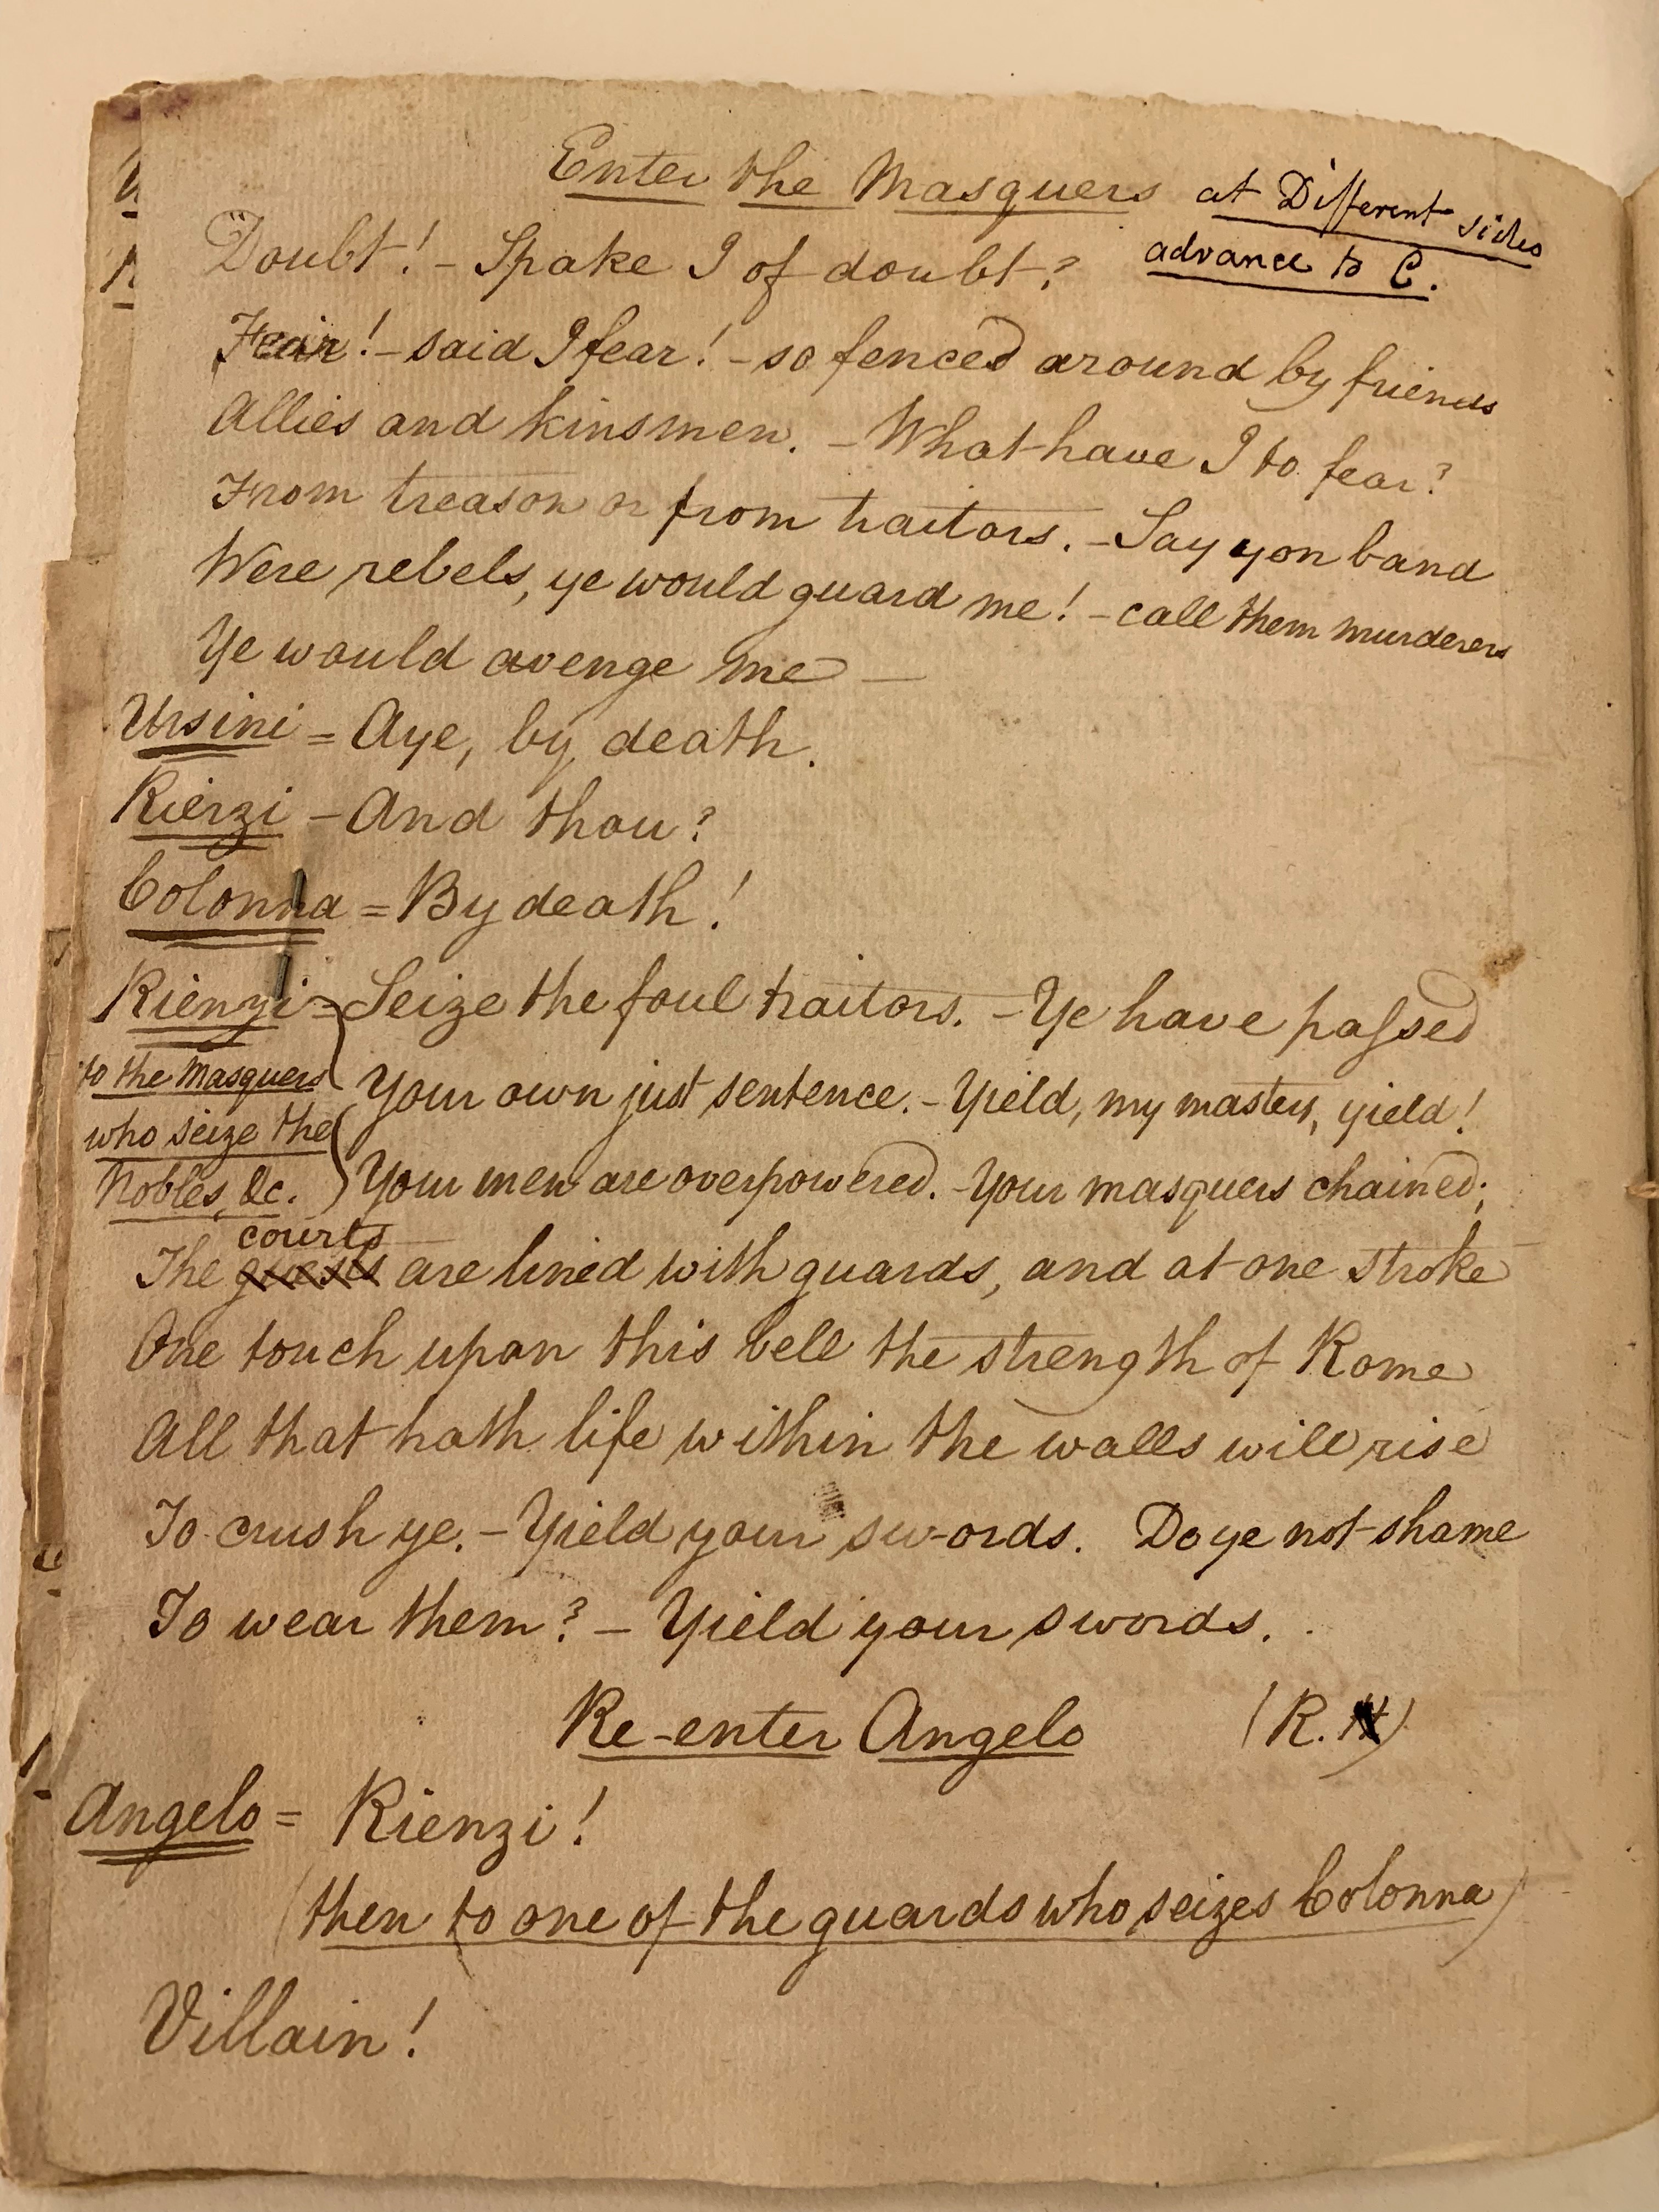 Enter the Masquers at Different sides
advance to C.
Doubt! - Spake I of doubt?
Fear! - said I fear! - so fenced around by friends
Allies and kinsmen. - What have I to fear?
From treason or from traitors. - Say yon band
Were rebels, ye would guard me! - call them murderers
Ye would avenge me -
Ursini = Aye, by death.
Rienzi - And thou?
Colonna = By death!
Rienzi = Seize the foul traitors. - Ye have passed
to the Masquers
Your own just sentence. - Yield, my masters, yield!
who seize the
Nobles, &c. Your men are overpowered. - Your masquers chained;
courts
The guests are lined with guards, and at one stroke
One touch upon this bell the strength of Rome
All that hath life within the walls will rise
To crush ye. - Yield your swords. Do ye not shame
To wear them? - Yield your swords.
Re-enter Angelo (R.)
Angelo = Rienzi!
(then to one of the guards who seizes Colonna)
Villain!